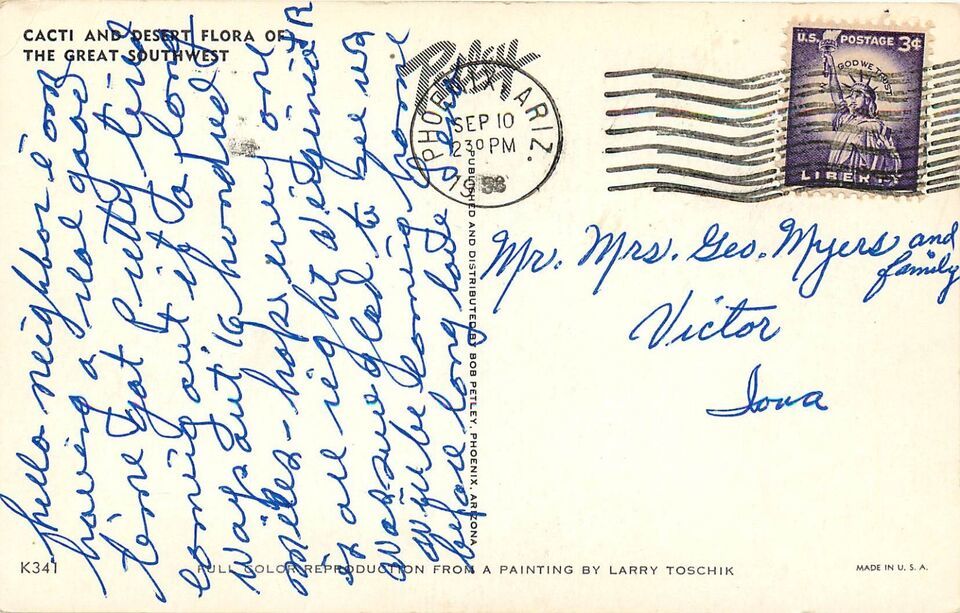 CACTI AND DESERT FLORA OF
THE GREAT SOUTHWEST
hello neighbor is our
having a real good
time got pretty tired
coming out it a long
ways out 16 hundred
miles - hope every one
is all right
was sure glad to see us
will be coming home
before long lots Love
PHOENIX ARIZ.
SEP 10
2 30 PM
U.S. POSTAGE 3¢
IN GOD WE TRUST
LIBERTY
Mr. Mrs. Geo. Myers and
family
Victor
Iowa
PUBLISHED AND DISTRIBUTED BY BOB PETLEY, PHOENIX, ARIZONA
K341
FULL COLOR REPRODUCTION FROM A PAINTING BY LARRY TOSCHIK
MADE IN U. S. A.